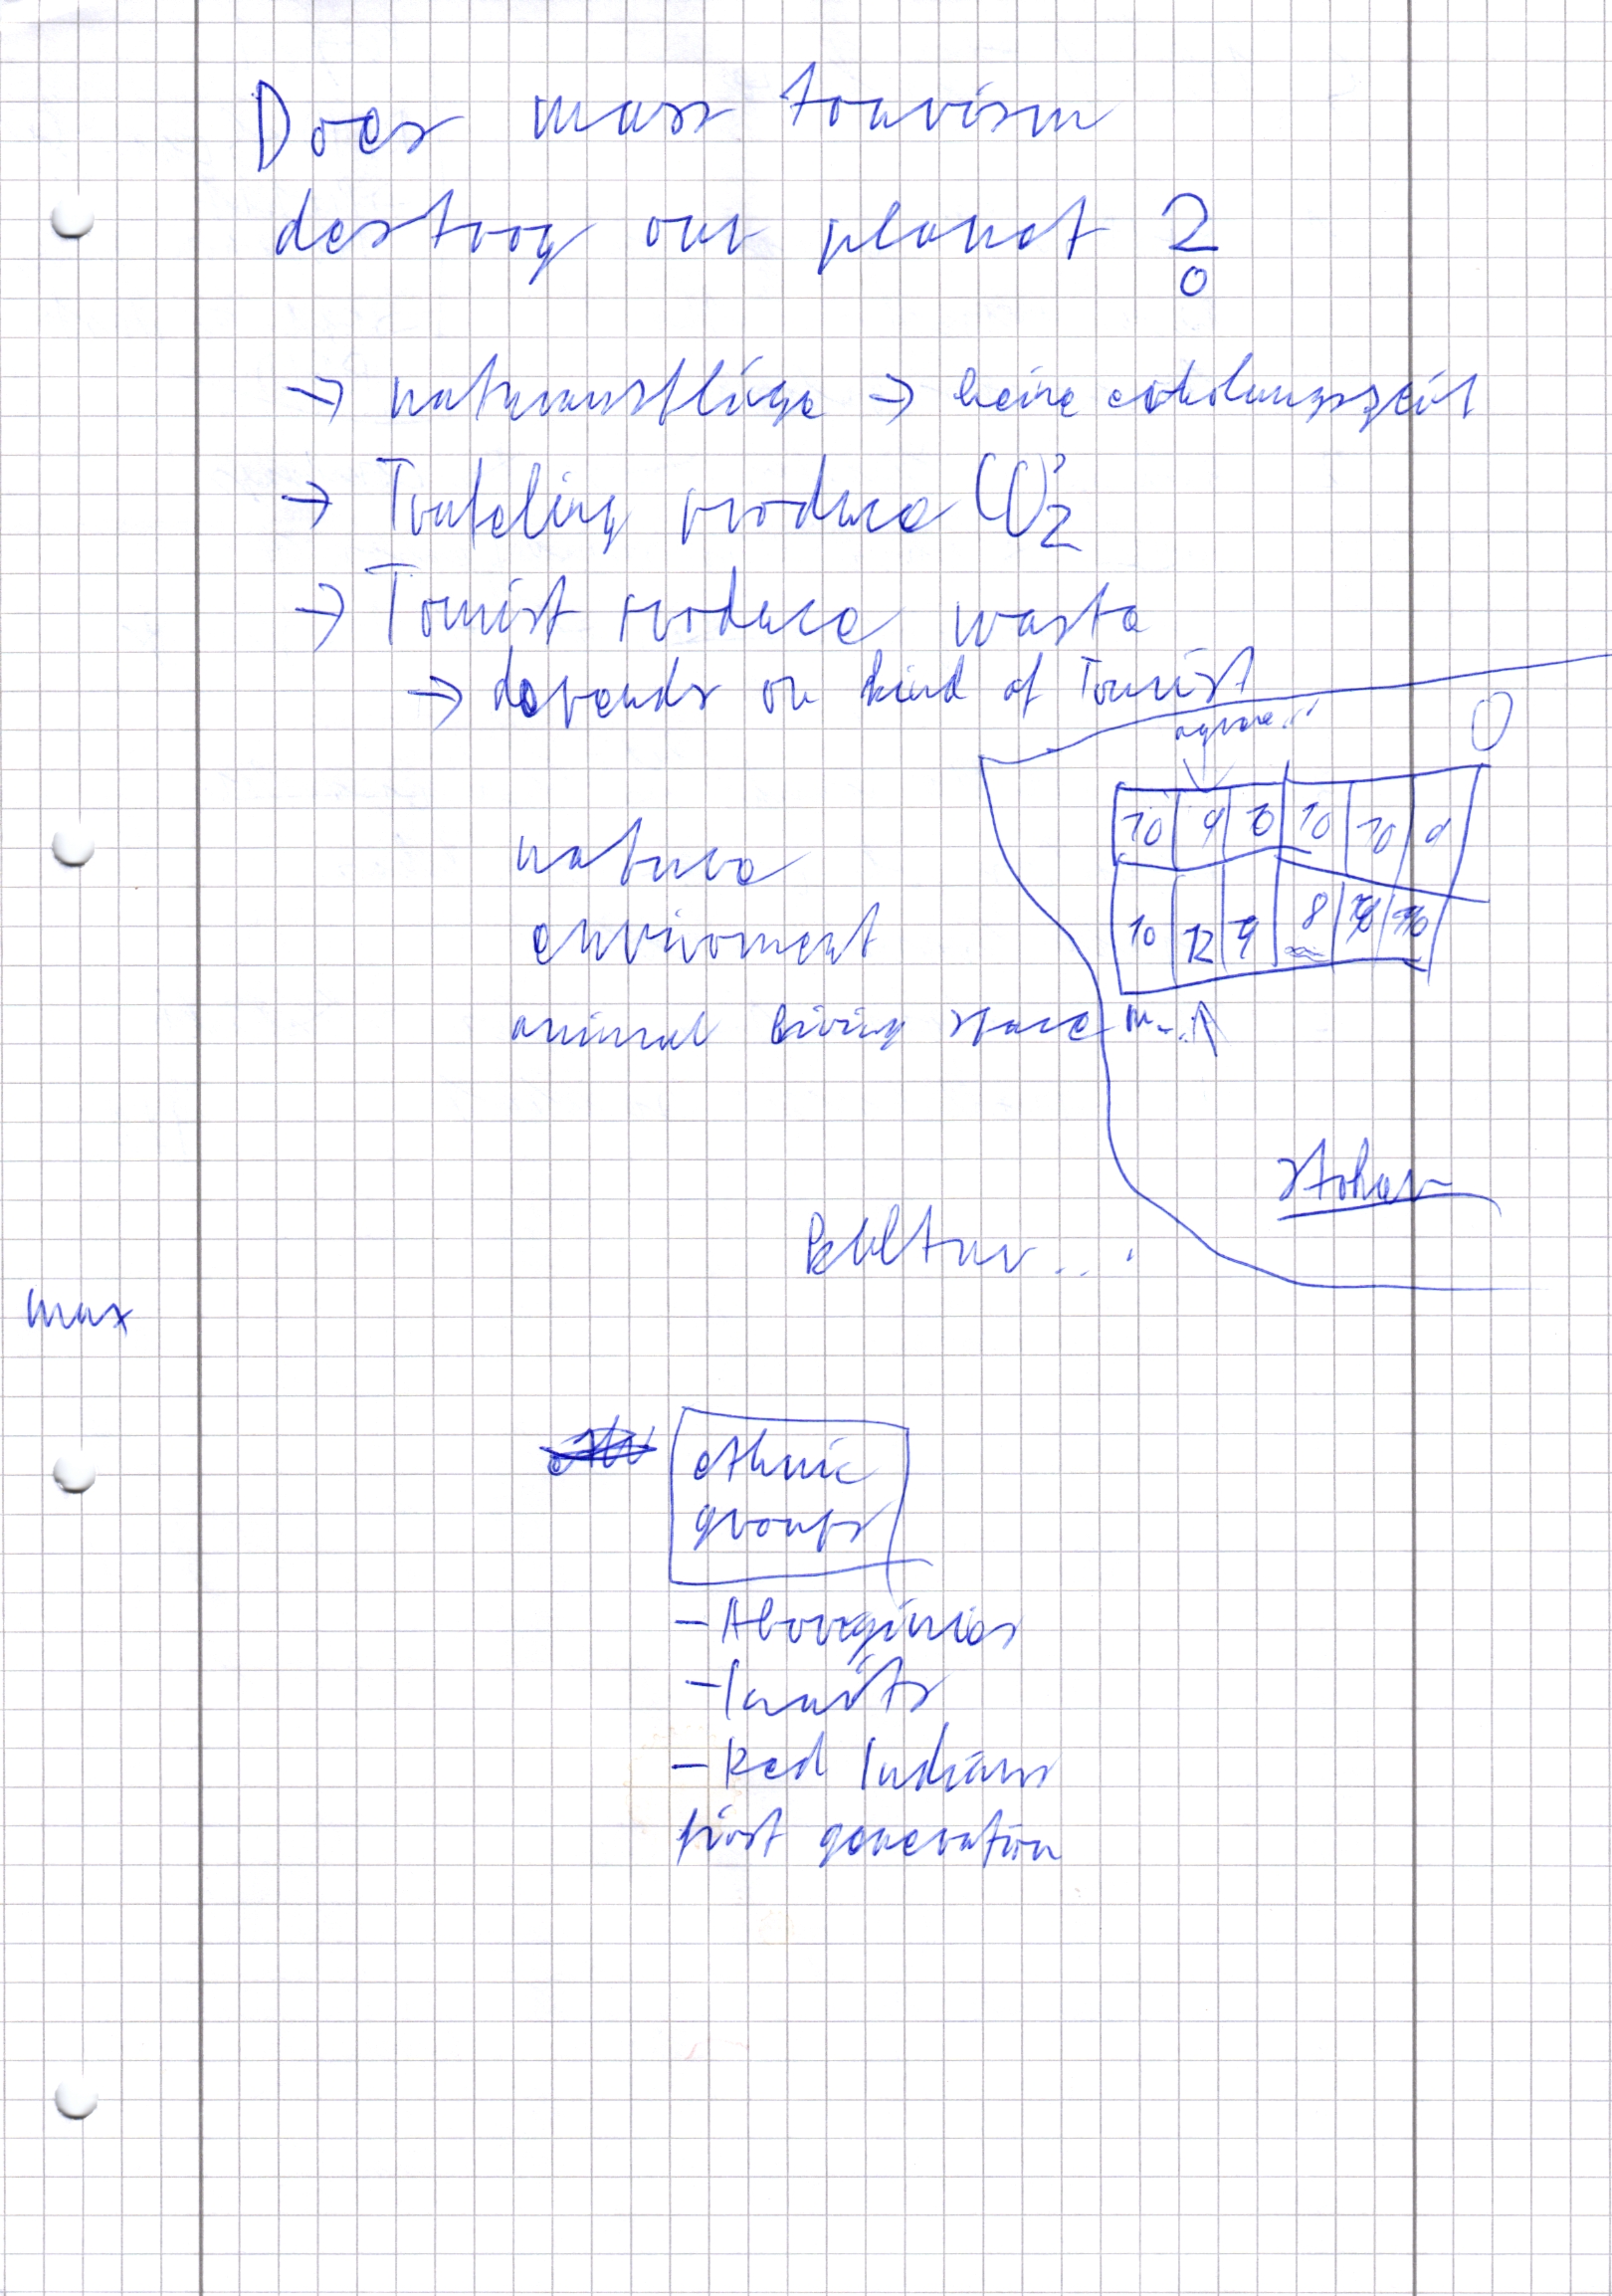 Does mass tourism
destroy our planet ?
→ naturausflüge → keine erholungszeit
→ Traveling produce CO2
→ Tourist produce waste
→ depends on kind of Tourist
10 9 8 10 10 9
nature
10 12 9 8 10 10
enviroment
animal living space
Stoher
Kultur...
max
ethnic
groups
- Aboregines
- Inuits
- Red Indians
first generation